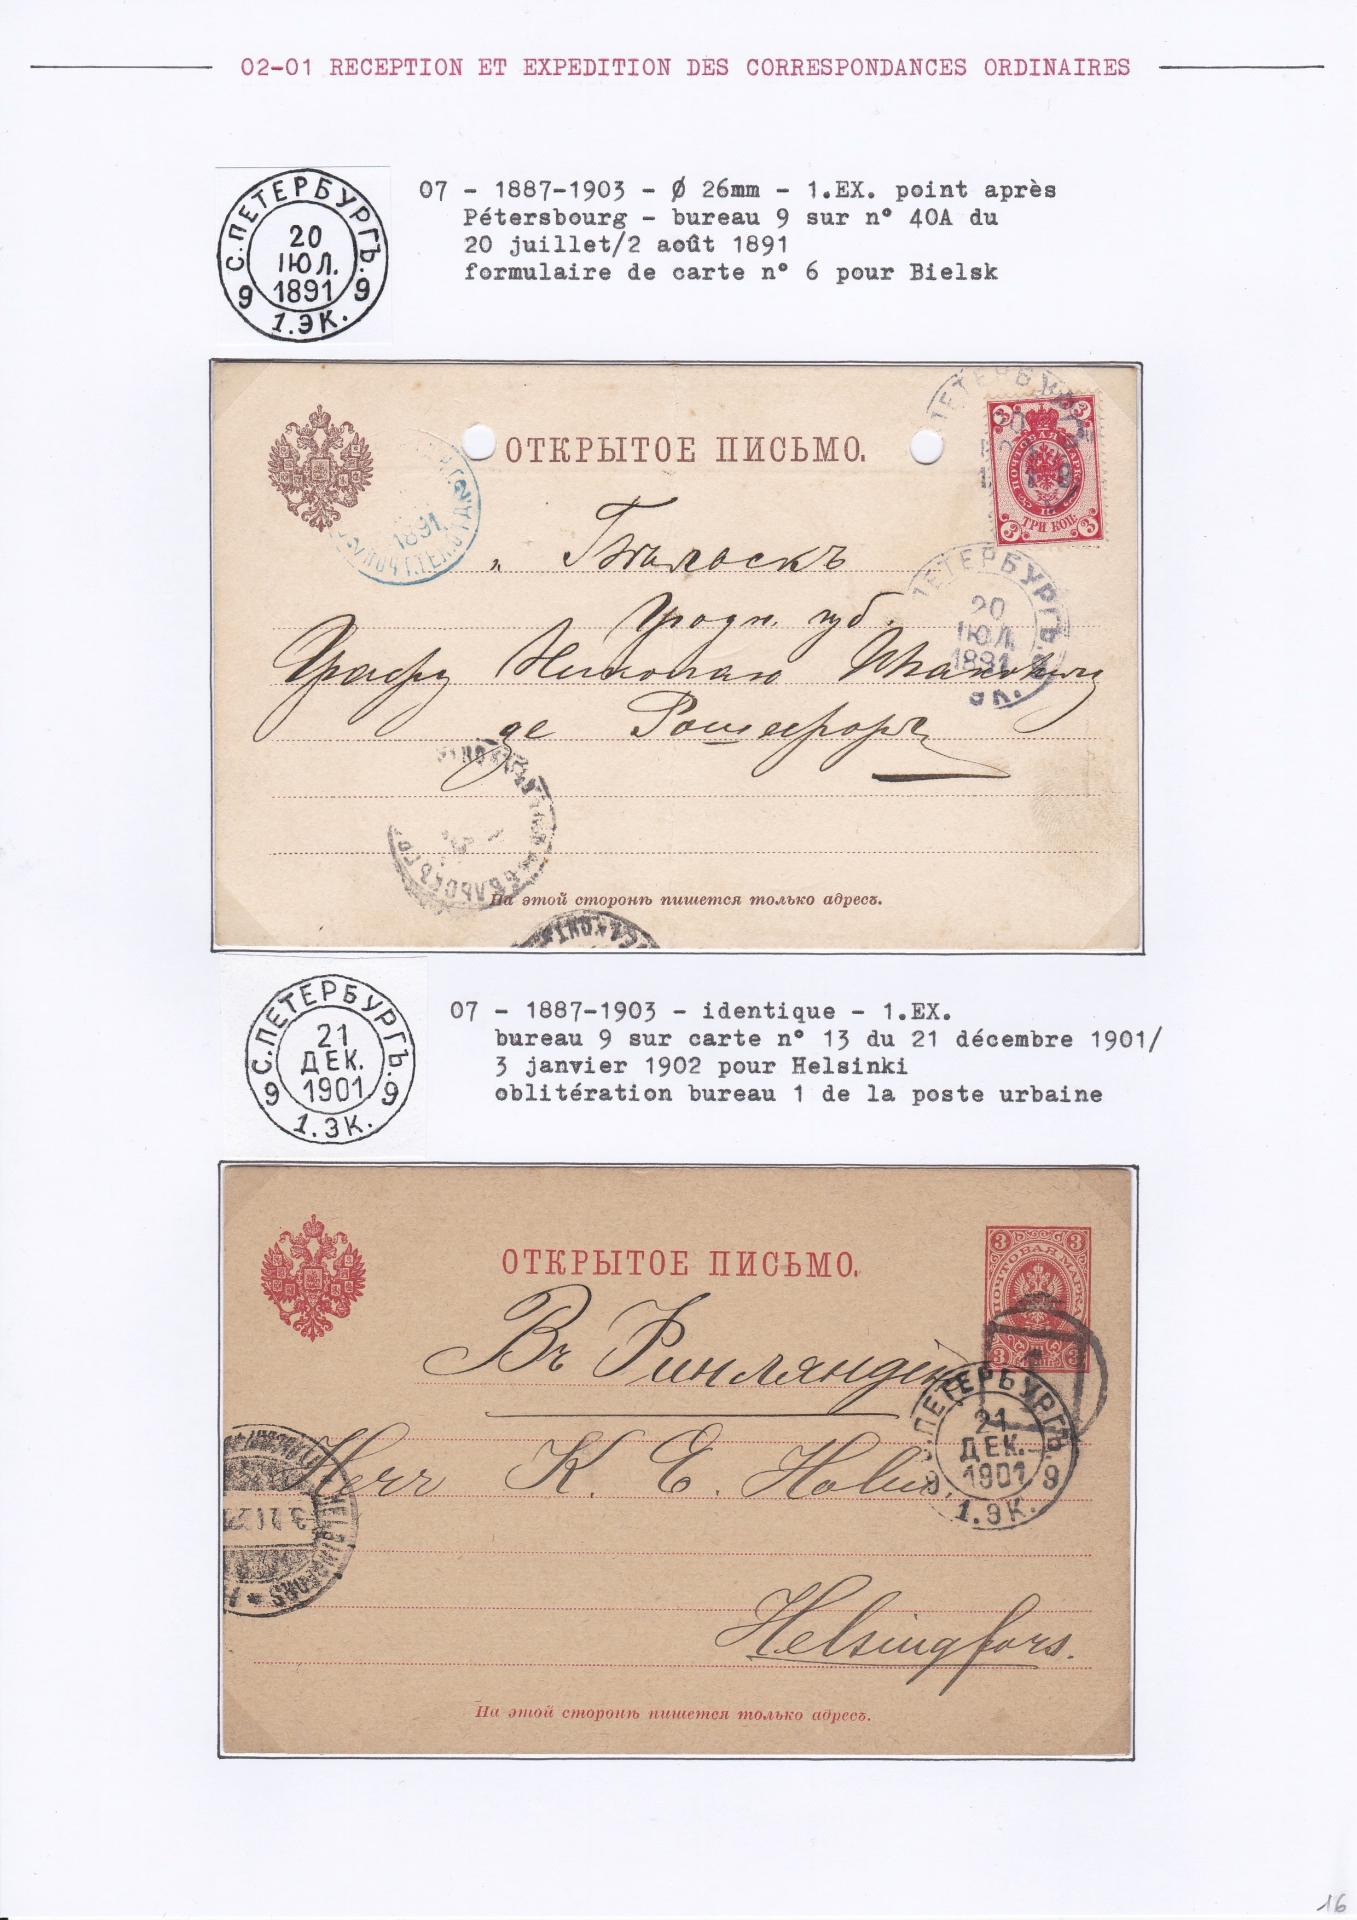 02-01 RECEPTION ET EXPEDITION DES CORRESPONDANCES ORDINAIRES
С.ПЕТЕРБУРГЪ.
20
ІЮЛ.
1891
9 9
1.ЭК.
07 - 1887-1903 - Ø 26mm - 1.EX. point après
Pétersbourg - bureau 9 sur n° 40A du
20 juillet/2 août 1891
formulaire de carte n° 6 pour Bielsk
ОТКРЫТОЕ ПИСЬМО.
3 3
ПОЧТОВАЯ МАРКА
ТРИ КОП.
3 3
1891
ПОЧТ.ТЕЛ.ОТД.
Гродн. губ.
ПЕТЕРБУРГЪ.
20
ІЮЛ.
1891
ЭК.
Графу Николаю
де Рошефоръ
На этой сторонѣ пишется только адресъ.
С.ПЕТЕРБУРГЪ.
21
ДЕК.
1901
9 9
1.ЭК.
07 - 1887-1903 - identique - 1.EX.
bureau 9 sur carte n° 13 du 21 décembre 1901/
3 janvier 1902 pour Helsinki
oblitération bureau 1 de la poste urbaine
ОТКРЫТОЕ ПИСЬМО.
3 3
ПОЧТОВАЯ МАРКА
3 3
Въ Финляндію
С.ПЕТЕРБУРГЪ.
21
ДЕК.
1901
9 9
1.ЭК.
Herr K. E.
HELSINGFORS
Helsingfors.
На этой сторонѣ пишется только адресъ.
16